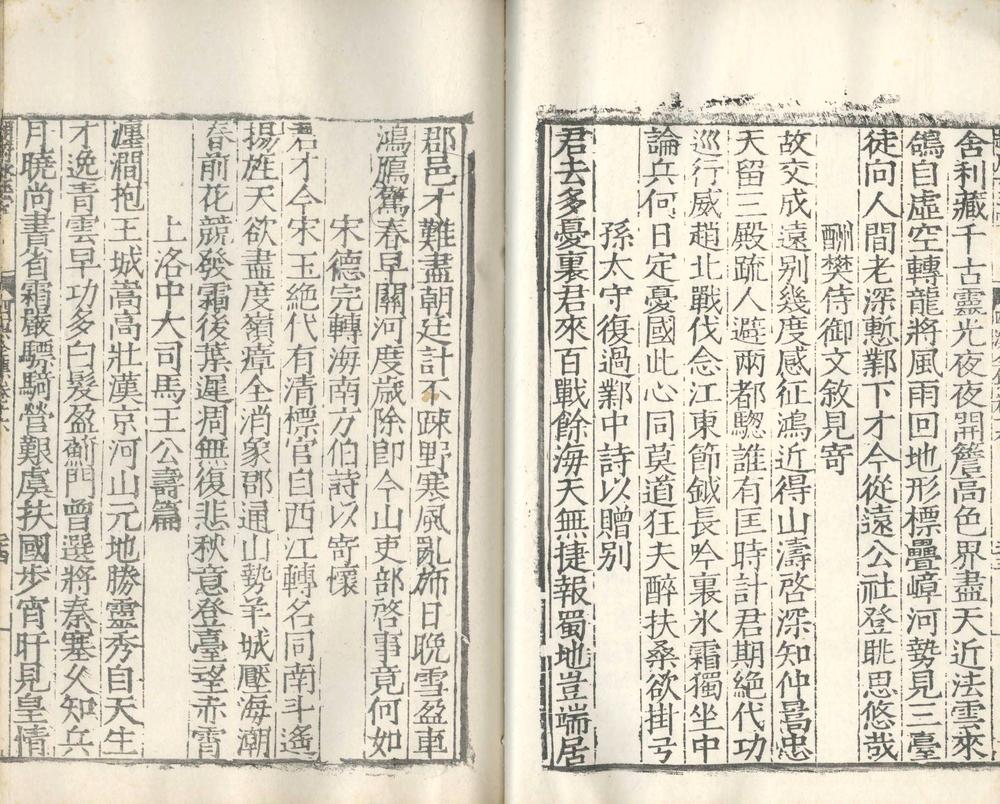 舍利藏千古靈光夜夜開簷高色界盡天近法雲來
鴿自虛空轉龍將風雨回地形標疊嶂河勢見三臺
徒向人間老深慙鄴下才今從遠公社登眺思悠哉
酬樊侍御文敘見寄
故交成遠别幾度感征鴻近得山濤啓深知仲晷忠
天留三殿疏人避兩都驄誰有匡時計君期絶代功
巡行威趙北戰伐念江東節鉞長吟裏氷霜獨坐中
論兵何日定憂國此心同莫道狂夫醉扶桑欲掛弓
孫太守復過鄴中詩以贈别
君去多憂裏君來百戰餘海天無捷報蜀地豈端居
郡邑才難盡朝廷計不踈野寒風亂斾日晚雪盈車
鴻鴈驚春早關河度歲除即今山吏部啓事竟何如
宋德完轉海南方伯詩以寄懷
君才今宋玉絶代有清標官自西江轉名同南斗遙
揚旌天欲盡度嶺瘴全消象郡通山勢羊城壓海潮
春前花競發霜後葉遲凋無復悲秋意登臺望赤霄
上洛中大司馬王公壽篇
瀍澗抱王城嵩高壯漢京河山元地勝靈秀自天生
才逸青雲早功多白髮盈薊門曾選將秦塞久知兵
月曉尚書省霜嚴驃騎營艱虞扶國步宵旰見皇情